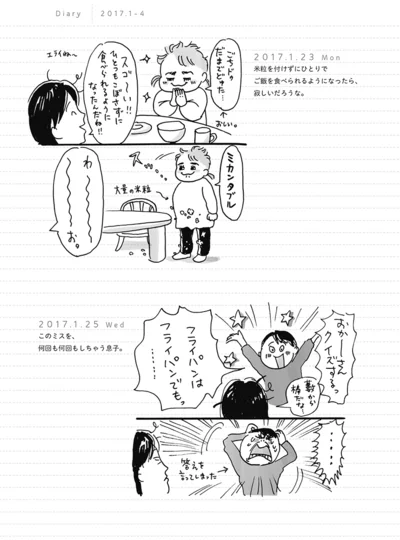 Diary
2017.1-4
2017.1.23 Mon
米粒を付けずにひとりで
ご飯を食べられるようになったら、
寂しいだろうな。
ごちドゥ
だまでどゅた…
↑おしい。
エライね〜
スゴーい!!
ひとつもこぼさずに
食べられるように
なったんだね!!
ミカンタブル
大量の米粒
わ〜〜〜お。
2017.1.25 Wed
このミスを、
何回も何回もしちゃう息子。
おかーさん
クイズするっ
藪から
棒だな
フライパンは
フライパンでも、
………。
・・・・・・
答えを
言ってしまった